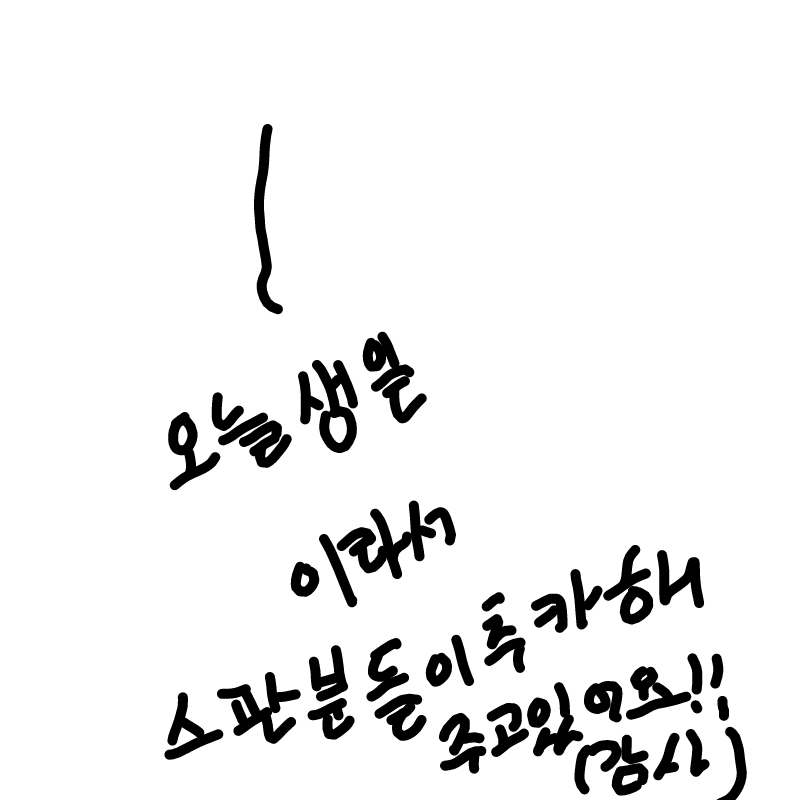 오늘 생일
이라서
스판분들이 추카해
주고있어요!!
(감사)